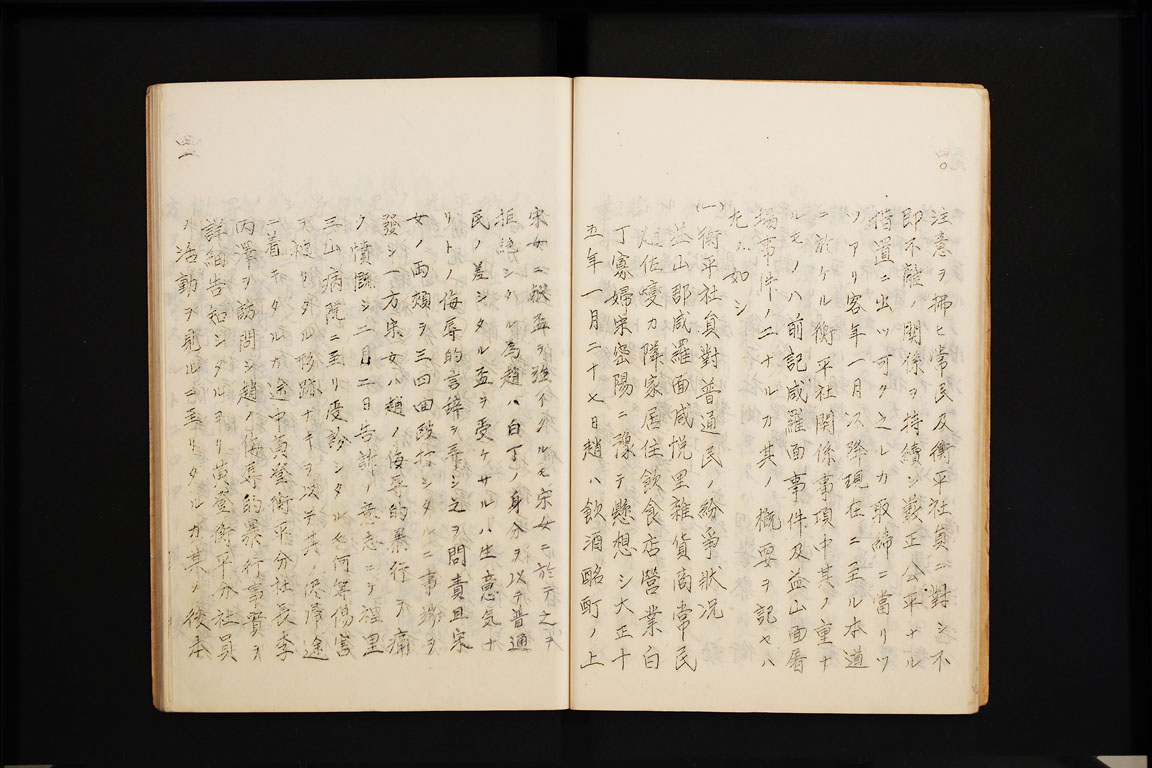 四〇
注意ヲ拂ヒ常民及衡平社員ニ對シ不
即不離ノ關係ヲ持續シ嚴正公平ナル
措置ニ出ツ可ク之レカ取締ニ當リツ
ツアリ客年一月以降現在ニ至ル本道
ニ於ケル衡平社關係事項中其ノ重ナ
ルモノハ前記咸羅面事件及益山面屠
場事件ノ二ナルカ其ノ概要ヲ記セハ
左ノ如シ
(一)衡平社員對普通民ノ紛爭狀況
益山郡咸羅面咸悅里雜貨商常民
趙佐變カ隣家居住飲食店營業白
丁寡婦宋密陽ニ豫テ懸想シ大正十
五年一月二十七日趙ハ飲酒酩酊ノ上
四一
宋女ニ獻盃ヲ强イタルモ宋女ニ於テ之ヲ
拒絕シタル爲趙ハ白丁ノ身分ヲ以テ普通
民ノ差シタル盃ヲ受ケサルハ生意気ナ
リトノ侮辱的言辞ヲ弄シ之ヲ問責且宋
女ノ両頰ヲ三四回毆打シタルニ事端ヲ
發シ一方宋女ハ趙ノ侮辱的暴行ヲ痛
ク憤慨シ二月二日告訴ノ意志ニテ裡里
三山病院ニ至リ受診シタルモ何等傷害
ヲ被リタル形跡ナキヲ以テ其ノ侭帰途
ニ着キタルカ途中黃登衡平分社長李
丙澤ヲ訪問シ趙ノ侮辱的暴行事實ヲ
詳細告知シタルヨリ黃登衡平分社員
ノ活動ヲ見ルニ至リタルカ其ノ後本